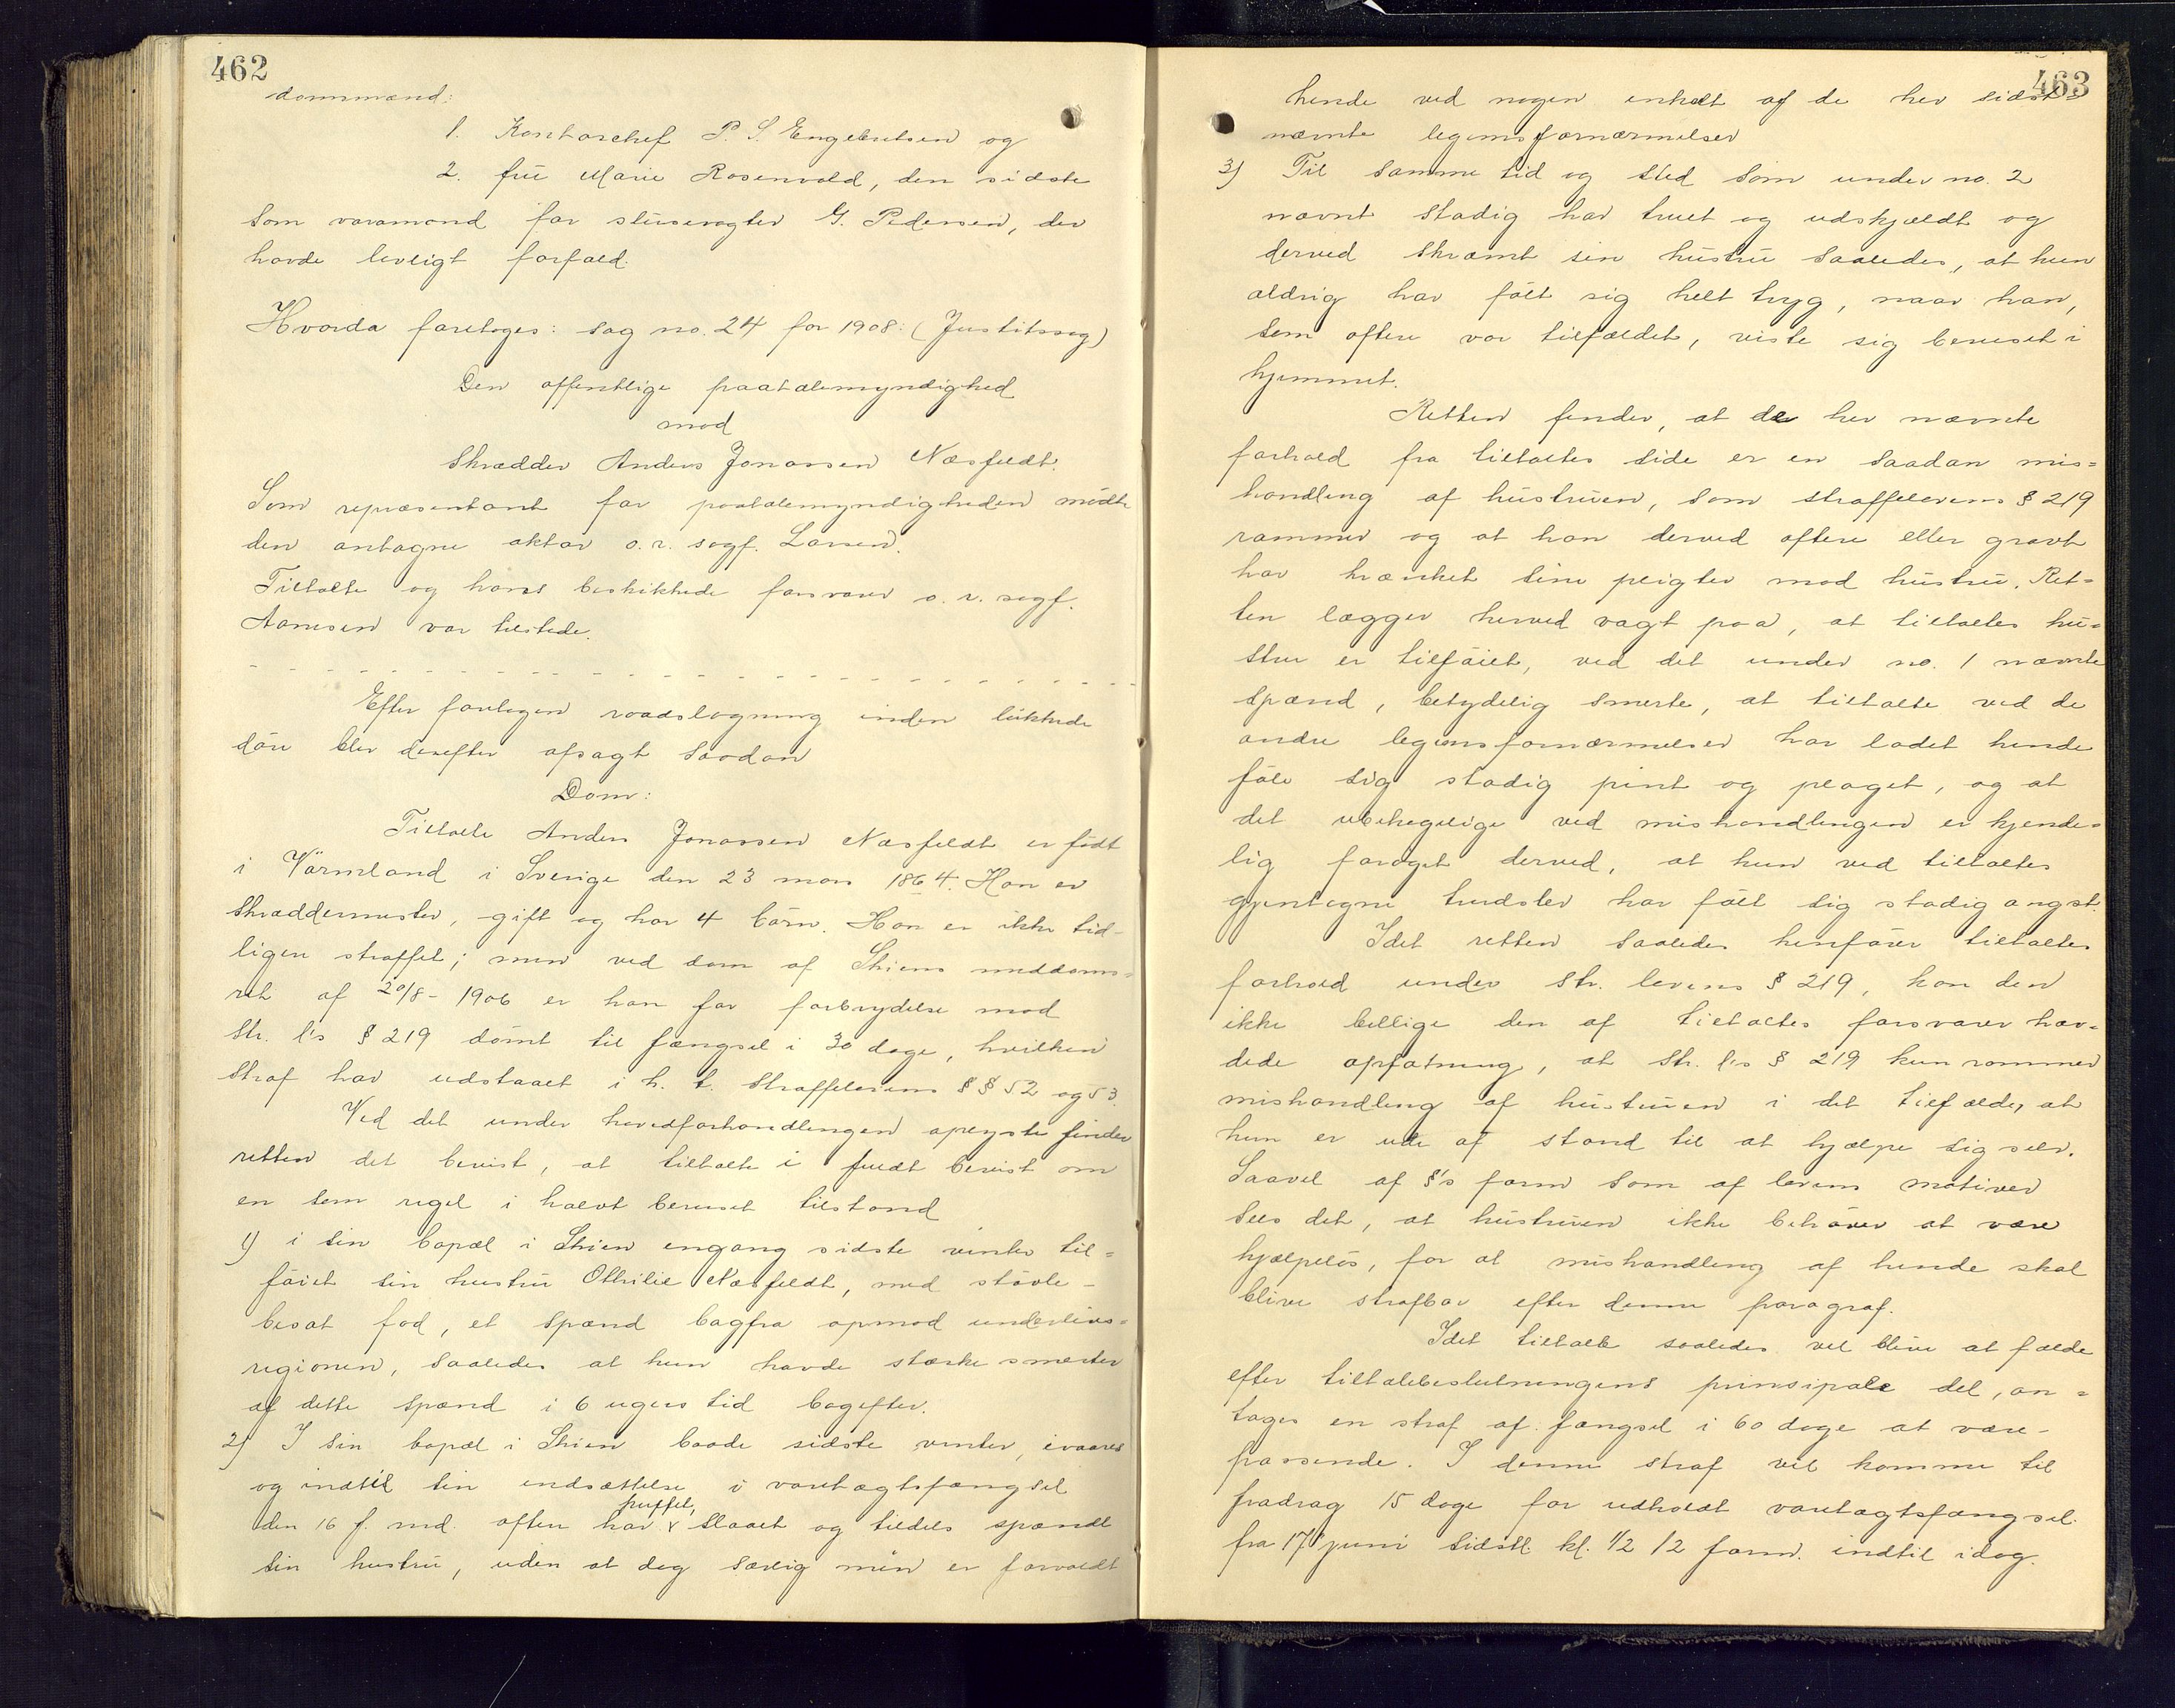 462
dommænd:
1. Kontorchef P. S. Engebretsen og
2. frü Marie Rosenvold, den sidste
som varamand for slüsevogter G. Pedersen, der
havde lovligt forfald.
Hvorda foretoges: sag no. 24 for 1908: (Justitssag)
Den offentlige paatalemyndighed
mod
Skrædder Anders Jonassen Næsfeldt.
Som repræsentant for paatalemyndigheden mødte
den antagne aktor o.r. sagf. Larsen.
Tiltalte og hans beskikkede forsvarer o.r. sagf.
Aanesen var tilstede.
Efter foretagen raadslagning inden lükkede
döre blev derefter afsagt saadan
Dom:
Tiltalte Anders Jonassen Næsfeldt er født
i Värmland i Sverige den 23 mars 1864. Han er
skræddermester, gift og har 4 börn. Han er ikke tid-
ligere straffet; men ved dom af Skiens meddoms=
ret af 20/8 - 1906 er han for forbrydelse mod
Str. l's § 219 dömt til fængsel i 30 dage, hvilken
straf har udstaaet i h. t. Straffelovens §§ 52 og 53.
Ved det under hovedforhandlingen oplyste finder
retten det bevist, at tiltalte i fuldt bevist om
en som regel i halvt beruset tilstand
1) i sin bopæl i Skien engang sidste vinter til=
föiet sin hustrü Othilie Næsfeldt, med stövle-
besat fod, et spænd bagfra opmod underlivs=
regionen, saaledes at hun havde stærke smerter
af dette spænd i 6 ugers tid bagefter.
2) I sin bopæl i Skien baade sidste vinter, ivaares
og indtil sin indsættelse i varetægtsfængsel
puffet,
den 16 f. md. ofte har slaaet og tildels spændt
sin hustrü, uden at dog særlig mén er forvoldt
463
hende ved nogen enkelt af de her sidst=
nævnte legemsfornærmelser
3) Til samme tid og sted som under no. 2
nævnt stadig har truet og udskjældt og
derved skræmt sin hüstrü saaledes, at hun
aldrig har fölt sig helt tryg, naar han,
som oftere var tilfældet, viste sig beruset i
hjemmet.
Retten finder, at de her nævnte
forhold fra tiltaltes side er en saadan mis=
handling af hüstrüen, som straffelovens § 219
rammer og at han derved oftere eller grovt
har krænket sine pligter mod hüstrü. Ret=
ten lægger herved vægt paa, at tiltaltes hü=
stru er tilföiet, ved det under no. 1 nævnte
spænd, betydelig smerte, at tiltalte ved de
andre legemsfornærmelser har ladet hende
föle sig stadig pint og plaget, og at
det ubehagelige ved mishandlingen er kjende=
lig foröget derved, at hun ved tiltaltes
gjentagne trudsler har fölt sig stadig angst.
Idet retten saaledes henförer tiltaltes
forhold under Str. lovens § 219, kan den
ikke billige den af tiltaltes forsvarer hæv=
dede opfatning, at Str. l's § 219 kun rammer
mishandling af hüstrüen i det tilfælde, at
hun er ude af stand til at hjælpe sig selv.
Saavel af §'s form som af lovens motiver
sees det, at hüstrüen ikke behöver at være
hjælpelös, for at mishandling af hende skal
blive strafbar efter denne paragraf.
Idet tiltalte saaledes vil blive at fælde
efter tiltalebeslutningens prinsipale del, an=
tages en straf af fængsel i 60 dage at være
passende. I denne straf vil komme til
fradrag 15 dage for udholdt varetægtsfængsel
fra 17 juni sidstl. kl. 1/2 12 form. indtil idag.